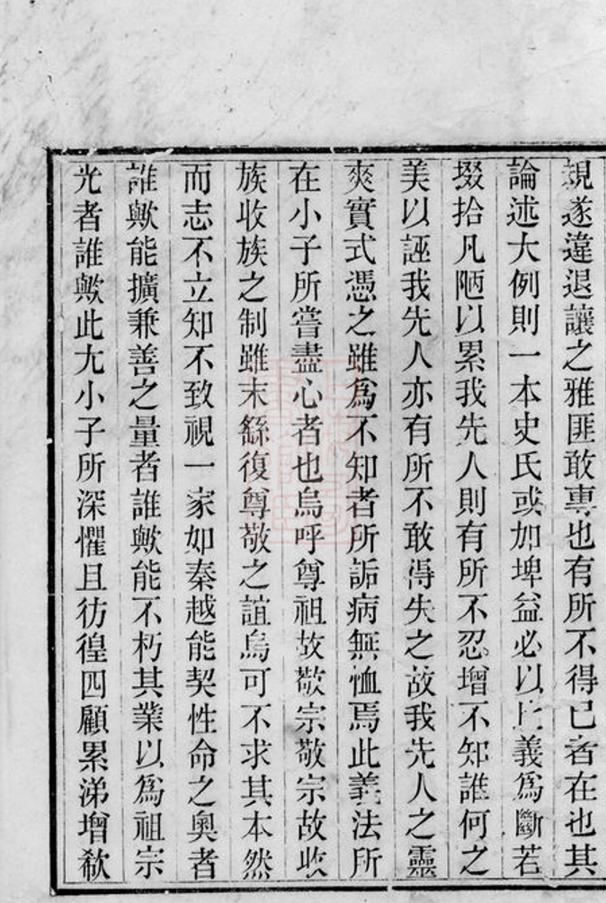 親遂違退讓之雅匪敢專也有所不得已者在也其
論述大例則一本史氏或加埤益必以上義爲斷若
掇拾凡陋以累我先人則有所不忍增不知誰何之
美以誣我先人亦有所不敢得失之故我先人之靈
爽實式憑之雖爲不知者所詬病無恤焉此義法所
在小子所嘗盡心者也烏呼尊祖故敬宗敬宗故收
族收族之制雖末繇復尊敬之誼烏可不求其本然
而志不立知不致視一家如秦越能契性命之奧者
誰歟能擴兼善之量者誰歟能不朽其業以爲祖宗
光者誰歟此尢小子所深懼且彷徨四顧累涕增欷